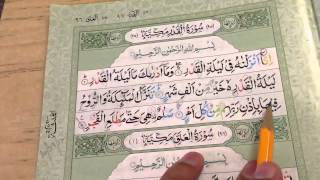 سُورَةُ الْقَدْرِ مَكِّيَّةٌ
بِسْمِ اللَّهِ الرَّحْمَٰنِ الرَّحِيمِ
إِنَّا أَنْزَلْنَٰهُ فِي لَيْلَةِ الْقَدْرِ وَمَا أَدْرَىٰكَ مَا لَيْلَةُ الْقَدْرِ
لَيْلَةُ الْقَدْرِ خَيْرٌ مِنْ أَلْفِ شَهْرٍ تَنَزَّلُ الْمَلَٰٓئِكَةُ وَالرُّوحُ
فِيهَا بِإِذْنِ رَبِّهِمْ مِنْ كُلِّ أَمْرٍ سَلَٰمٌ هِيَ حَتَّىٰ مَطْلَعِ الْفَجْرِ
سُورَةُ الْعَلَقِ مَكِّيَّةٌ